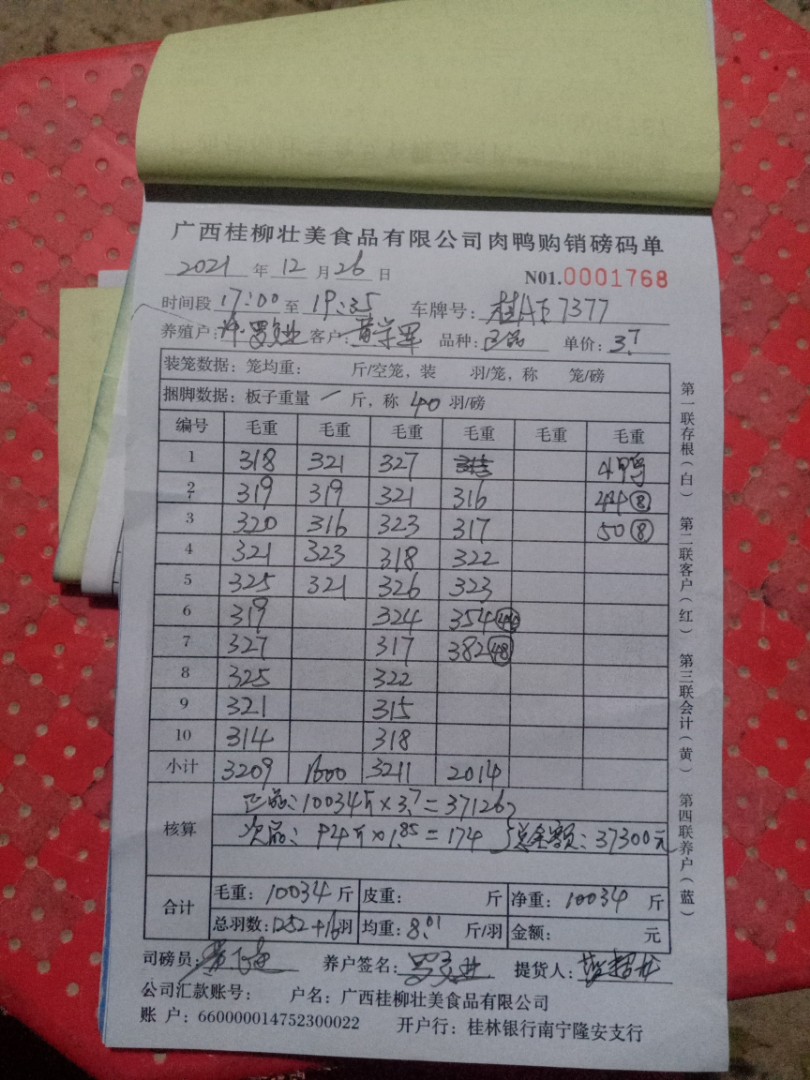 广西桂柳壮美食品有限公司肉鸭购销磅码单
2021 年 12 月 26 日 N01.0001768
时间段 17:00 至 19:35 车牌号: 7377
养殖户: 客户: 品种: 正品 单价: 3.7
装笼数据: 笼均重: 斤/空笼, 装 羽/笼, 称 笼/磅
捆脚数据: 板子重量 斤, 称 40 羽/磅
编号 毛重 毛重 毛重 毛重 毛重 毛重
1 318 321 327 鸭
2 319 319 321 316 44⑧
3 320 316 323 317 50⑧
4 321 323 318 322
5 325 321 326 323
6 319 324 354
7 327 317 382㊽
8 325 322
9 321 315
10 314 318
小计 3209 1600 3211 2014
核算 正品: 10034斤×3.7=37126
次品: 94斤×1.85=174 总金额: 37300元
合计 毛重: 10034 斤 皮重: 斤 净重: 10034 斤
总羽数: 1252+16羽 均重: 8.01 斤/羽 金额: 元
司磅员: 养户签名: 提货人:
公司汇款账号: 户名: 广西桂柳壮美食品有限公司
账 户: 660000014752300022 开户行: 桂林银行南宁隆安支行
第一联存根(白) 第二联客户(红) 第三联会计(黄) 第四联养户(蓝)